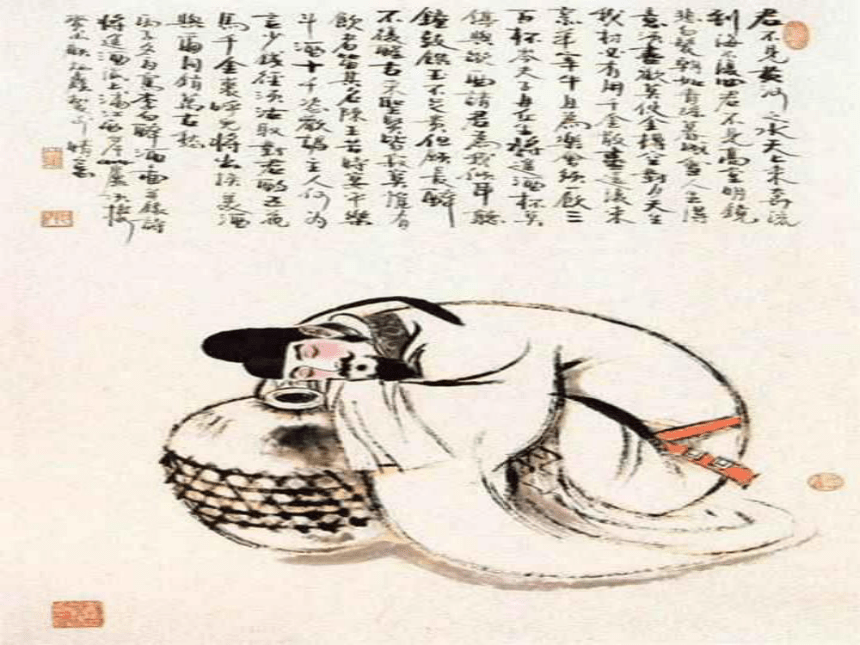 君不見黃河之水天上來奔流
到海不復回君不見高堂明鏡
悲白髮朝如青絲暮成雪人生得
意須盡歡莫使金樽空對月天生
我材必有用千金散盡還復來
烹羊宰牛且為樂會須一飲三
百杯岑夫子丹丘生將進酒杯莫
停與歌曲請君為我傾耳聽
鐘鼓饌玉不足貴但願長醉
不復醒古來聖賢皆寂寞惟有
飲者留其名陳王昔時宴平樂
斗酒十千恣歡謔主人何為
言少錢徑須沽取對君酌五花
馬千金裘呼兒將出換美酒
與爾同銷萬古愁
李白醉酒圖
將進酒